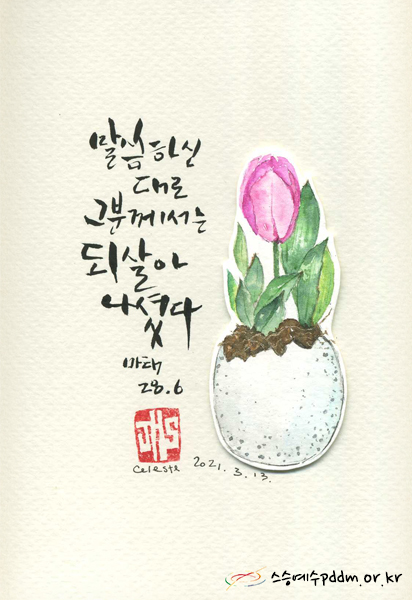 말씀하신
대로
그분께서는
되살아
나셨다
마태
28.6
JHS
Celeste 2021. 3. 13.
스승예수pddm.or.kr